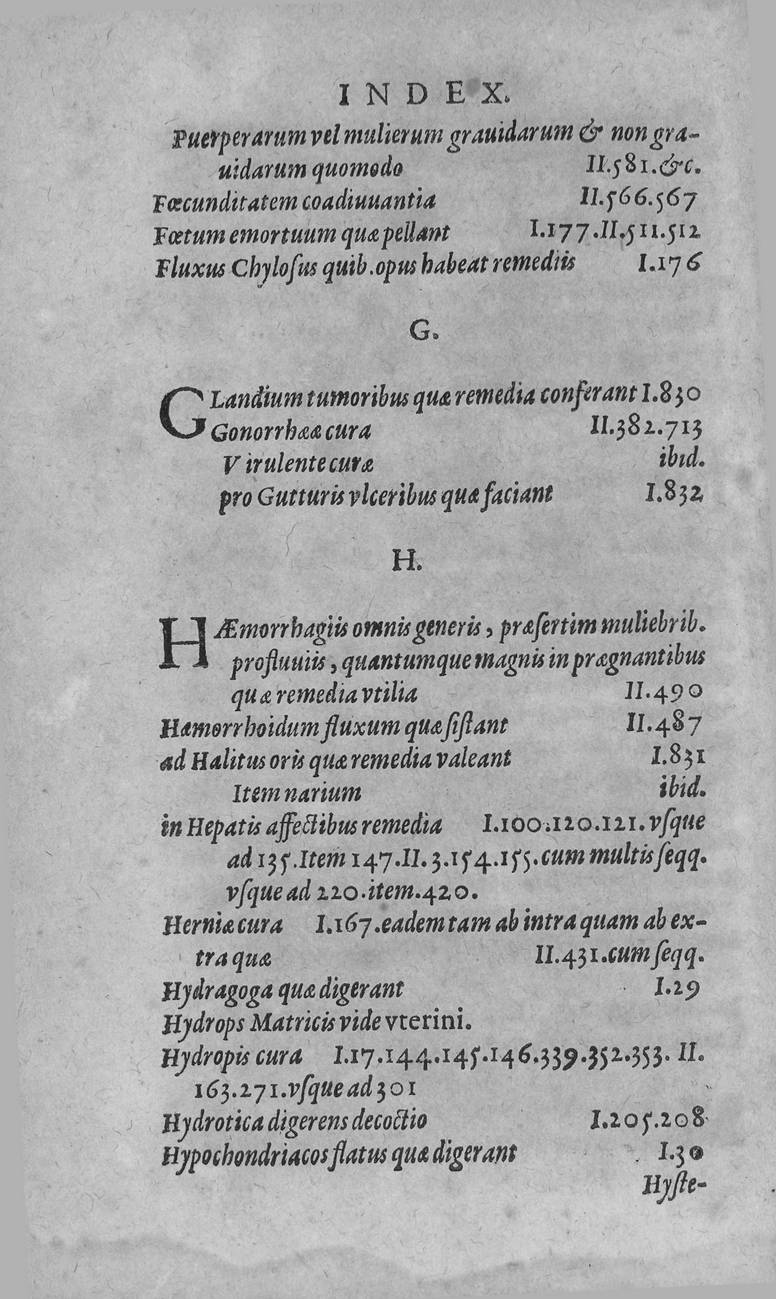 INDEX.
Puerperarum vel mulierum grauidarum & non gra-
uidarum quomodo II.581.&c.
Fœcunditatem coadiuuantia II.566.567
Fœtum emortuum quæ pellant I.177.II.511.512
Fluxus Chyloſus quib.opus habeat remediis I.176
G.
GLandium tumoribus quæ remedia conferant I.830
Gonorrhææ cura II.382.713
Virulente curæ ibid.
pro Gutturis vlceribus quæ faciant I.832
H.
HÆmorrhagiis omnis generis, præſertim muliebrib.
profluuiis, quantumque magnis in prægnantibus
quæ remedia vtilia II.490
Hæmorrhoidum fluxum quæ ſiſtant II.487
ad Halitus oris quæ remedia valeant I.831
Item narium ibid.
in Hepatis affectibus remedia I.100.120.121.vſque
ad 135.Item 147.II.3.154.155.cum multis ſeqq.
vſque ad 220.item.420.
Herniæ cura I.167.eadem tam ab intra quam ab ex-
tra quæ II.431.cum ſeqq.
Hydragoga quæ digerant I.29
Hydrops Matricis vide vterini.
Hydropis cura I.17.144.145.146.339.352.353. II.
163.271.vſque ad 301
Hydrotica digerens decoctio I.205.208
Hypochondriacos flatus quæ digerant I.30
Hyſte-